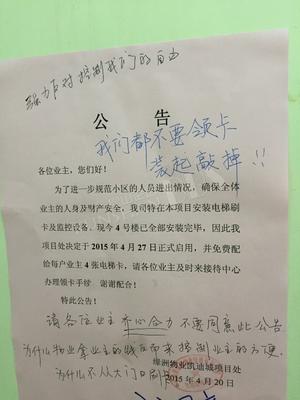 强力反对控制我们的自由
公 告
我们都不要领卡
装起敲掉!!
各位业主,您们好!
为了进一步规范小区的人员进出情况,确保全体
业主的人身及财产安全,我司特在本项目安装电梯刷
卡及监控设备。现今4号楼已全部安装完毕,因此我
项目处决定于2015年4月27日正式启用,并免费配
给每户业主4张电梯卡,请各位业主及时来接待中心
办理领卡手续 谢谢配合!
特此公告!
请各位业主齐心合力不要同意此公告
为什么物业拿业主的钱而来控制业主的方便.
绿洲物业凯迪城项目处
为什么不从大门口刷卡
2015年4月20日